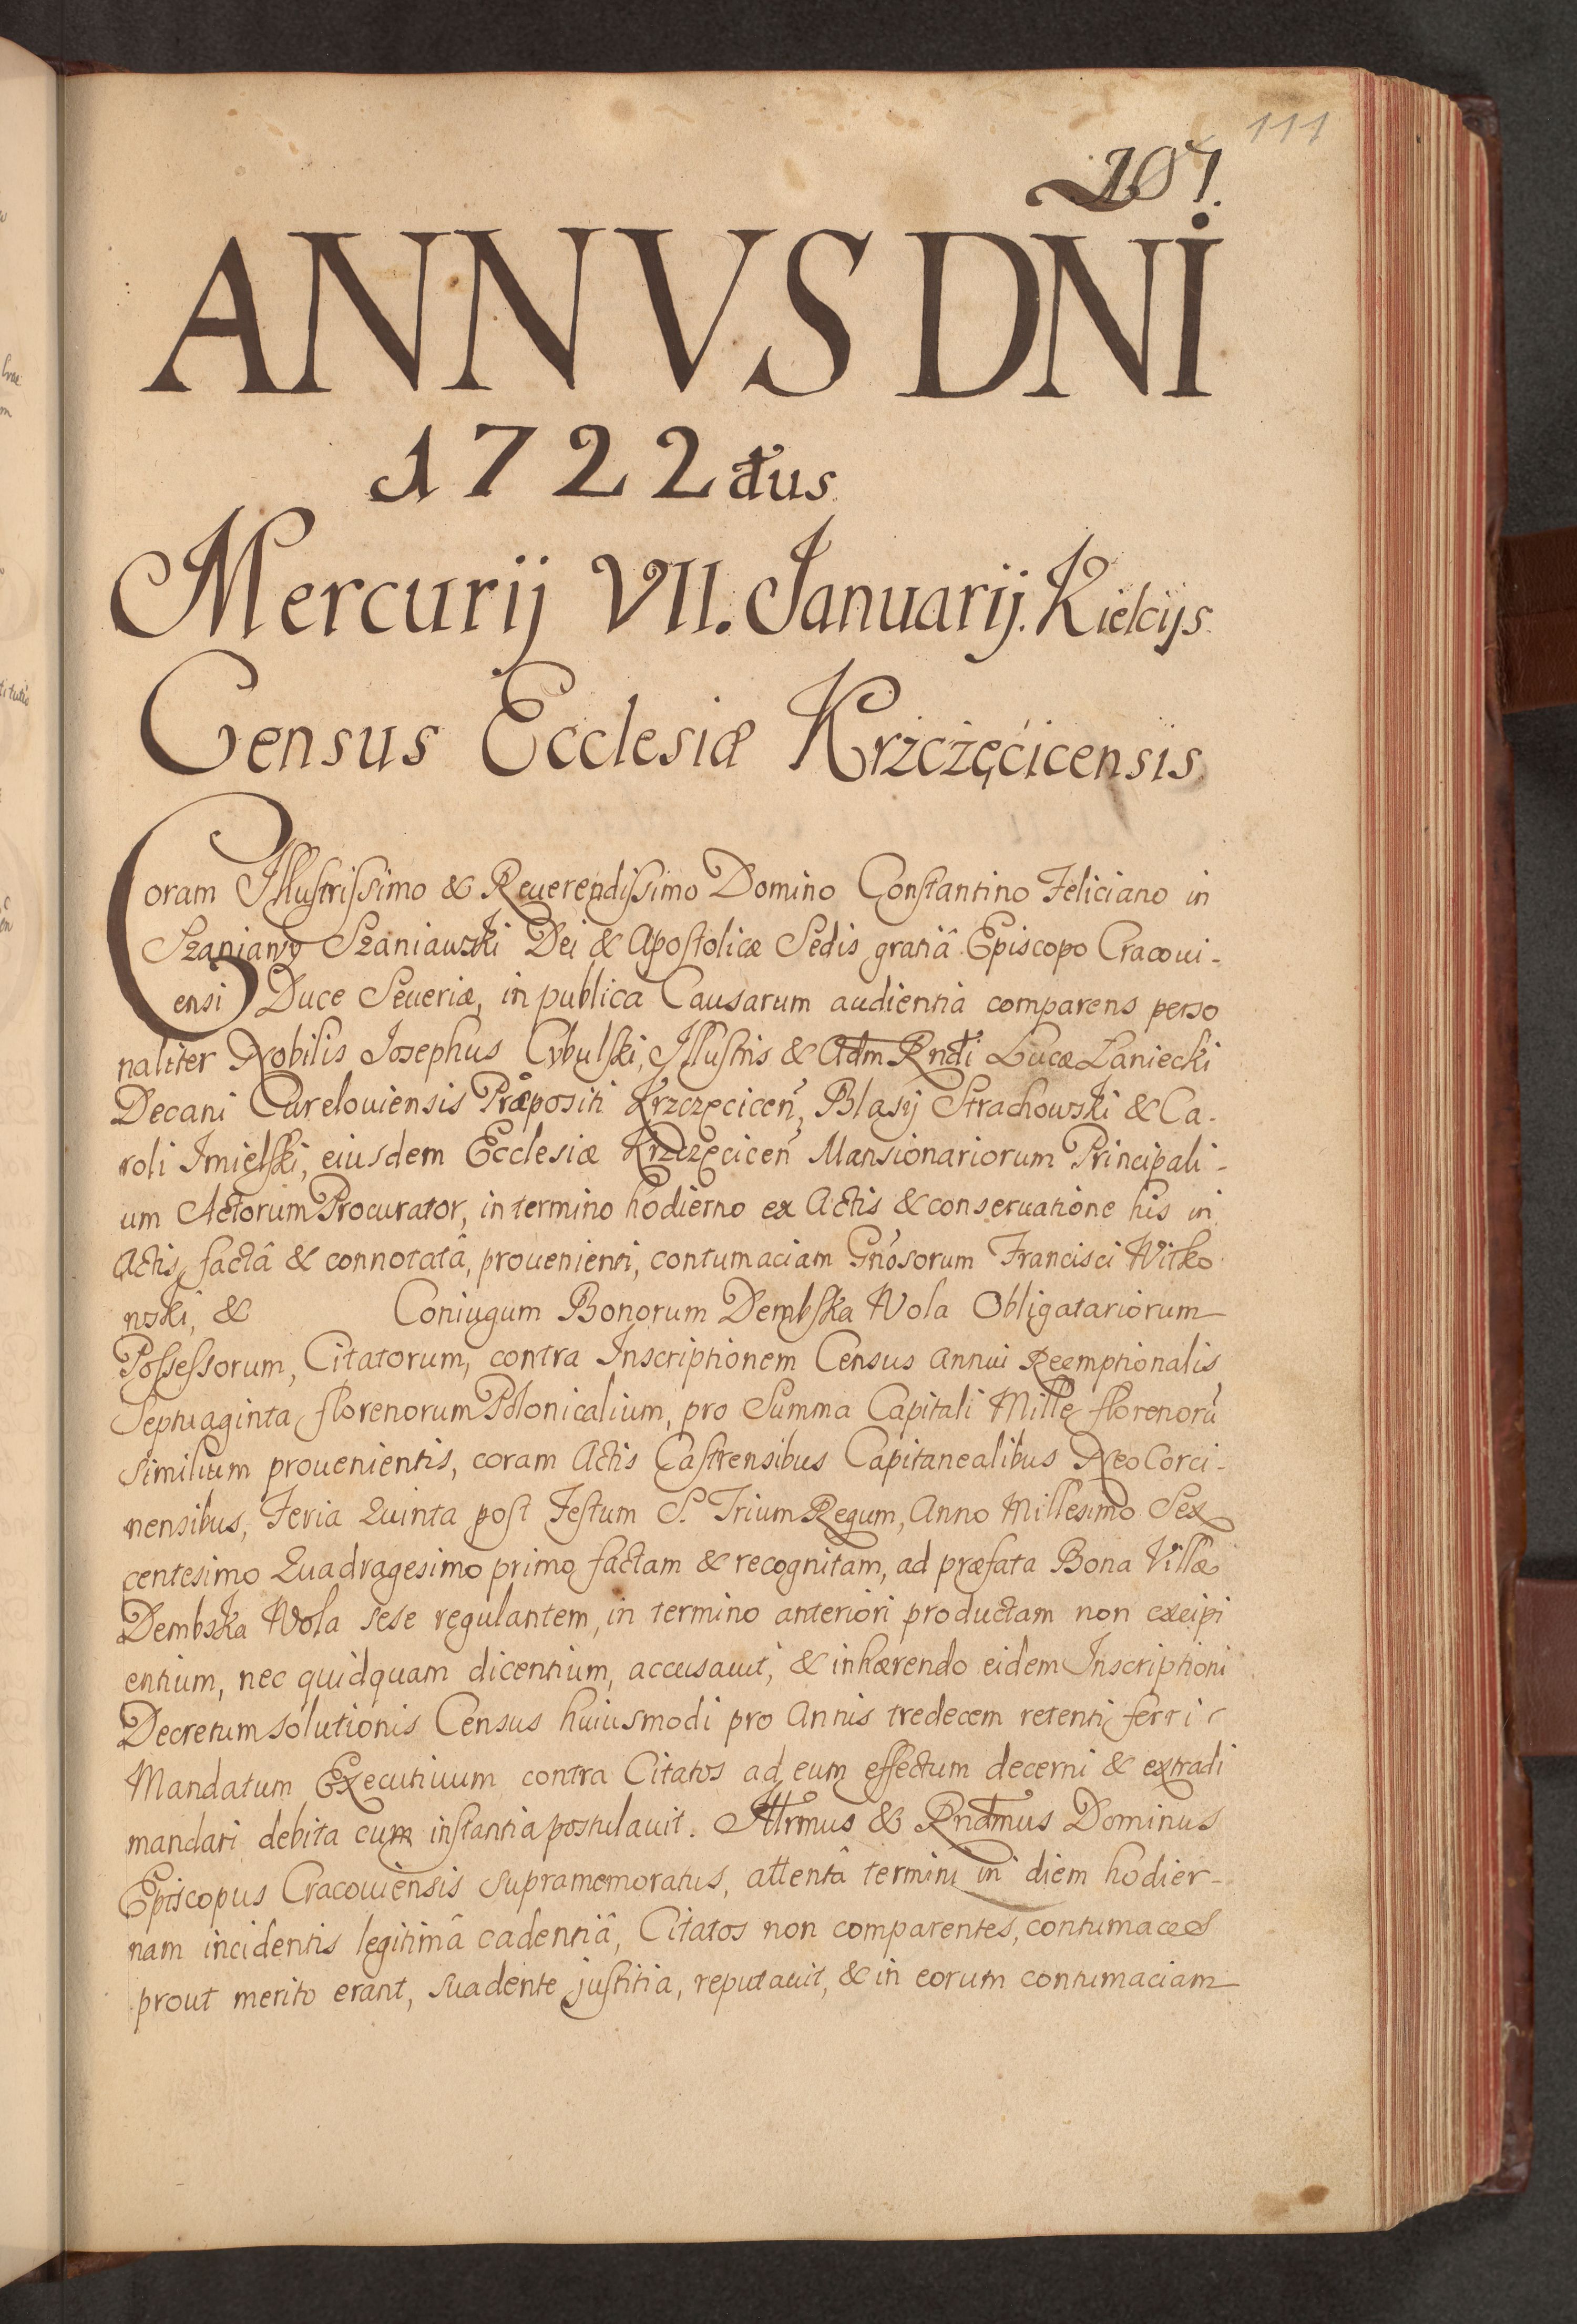 111
207.
ANNVS DN̄I
1722dus
Mercurij VII. Januarij. Kielcijs.
Census Ecclesiæ Krzczęćicensis.
Coram Illustrissimo & Reuerendissimo Domino Constantino Feliciano in
Szaniawy Szaniawski Dei & Apostolicæ Sedis gratiâ Episcopo Cracoui-
ensi Duce Seueriæ, in publica Causarum audientia comparens perso
naliter Nobilis Josephus Cybulski, Illustris & Adm Rndi Lucæ Laniecki
Decani Curelouiensis Præpositi Krzczęciceñ, Blasij Strachowski & Ca-
roli Imielski, eiusdem Ecclesiæ Krzczęciceñ Mansionariorum Principali-
um Actorum Procurator, in termino hodierno ex Actis & conseruatione his in
Actis factâ & connotatâ, prouenienti, contumaciam Gnosorum Francisci Witko
wski, & Coniugum Bonorum Dembska Wola Obligatariorum
Possessorum, Citatorum, contra Inscriptionem Census annui Reemptionalis
Septuaginta florenorum Polonicalium, pro Summa Capitali Mille florenorū
similium prouenientis, coram Actis Castrensibus Capitanealibus NeoCorci-
nensibus, Feria Quinta post Festum S. Trium Regum, Anno Millesimo Sex
centesimo Quadragesimo primo factam & recognitam, ad præfata Bona Villæ
Dembska Wola sese regulantem, in termino anteriori productam non excipi
entium, nec quidquam dicentium, accusauit, & inhærendo eidem Inscriptioni
Decretum solutionis Census huiusmodi pro Annis tredecem retenti ferri
Mandatum Executiuum contra Citatos ad eum effectum decerni & extradi
mandari debita cum instantia postulauit. Illrmus & Rndmus Dominus
Episcopus Cracouiensis supramemoratus, attentâ termini in diem hodier-
nam incidentis legitimâ cadentiâ, Citatos non comparentes, contumaces
prout merito erant, suadente justitia, reputauit, & in eorum contumaciam